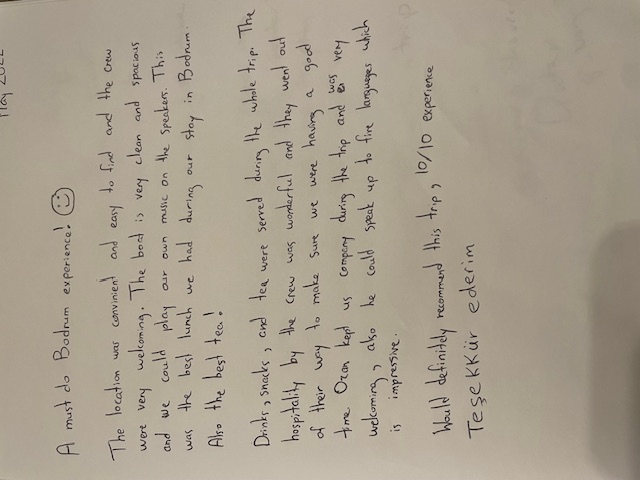 May 2022
A must do Bodrum experience! ☺
The location was convinient and easy to find and the crew
were very welcoming. The boat is very clean and spacious
and we could play our own music on the speakers. This
was the best lunch we had during our stay in Bodrum.
Also the best tea!
Drinks, snacks, and tea were served during the whole trip. The
hospitality by the crew was wonderful and they went out
of their way to make sure we were having a good
time. Ozan kept us company during the trip and was very
welcoming, also he could speak up to five languages which
is impressive.
Would definitely recommend this trip, 10/10 experience
Teşekkür ederim